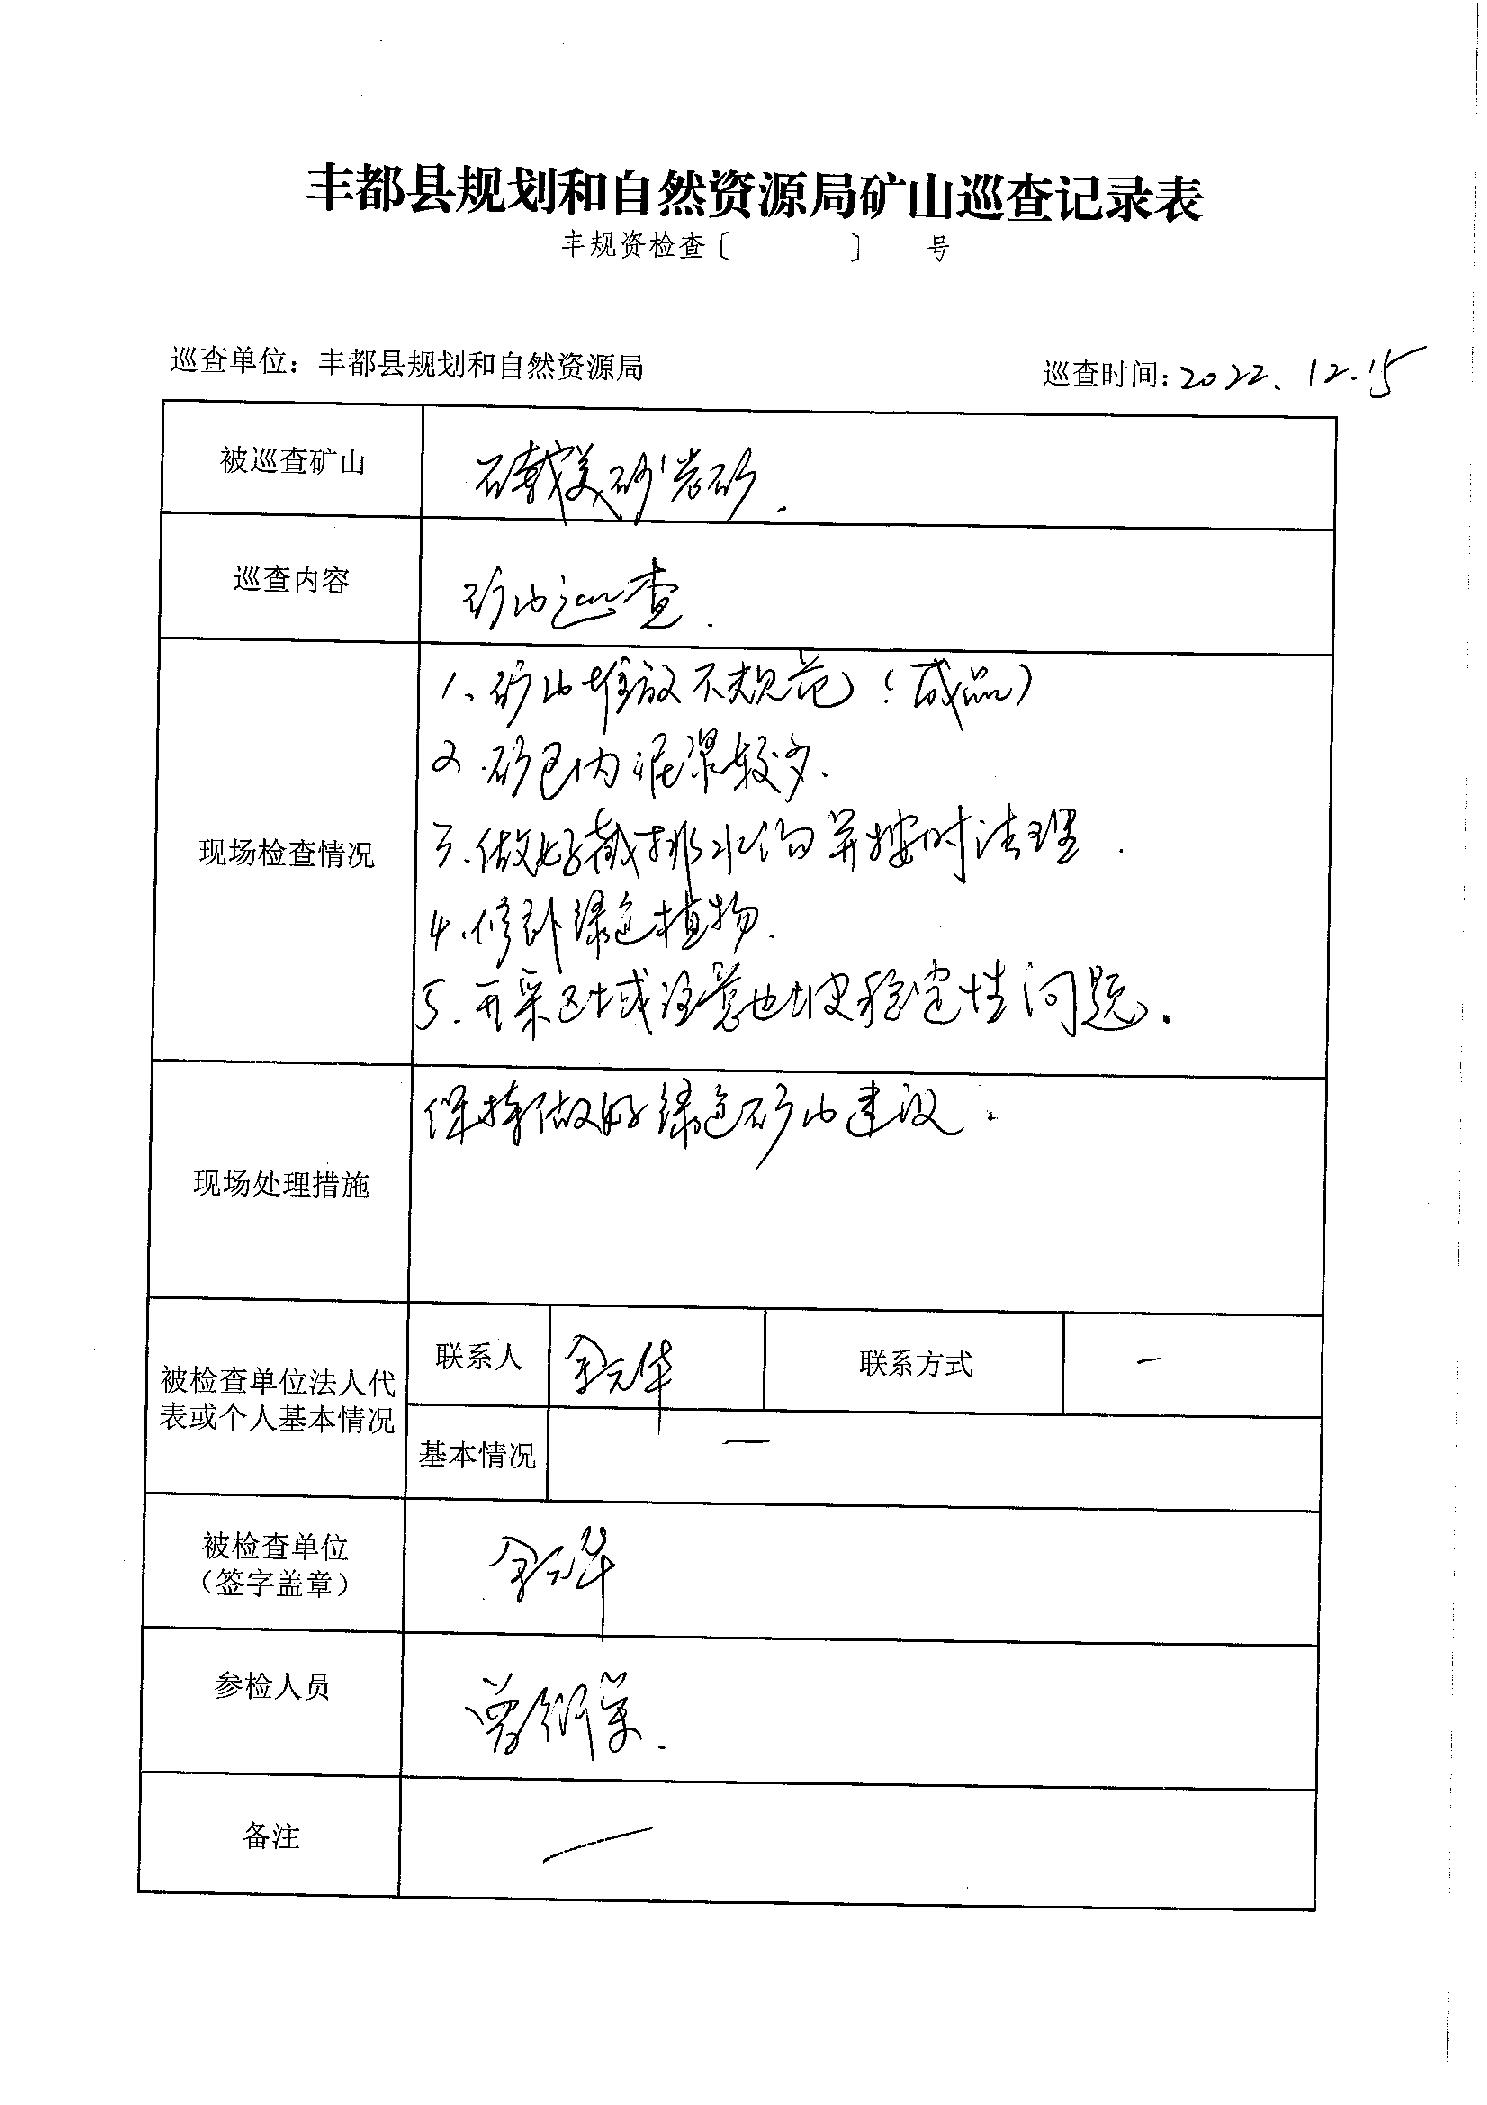 丰都县规划和自然资源局矿山巡查记录表
丰规资检查〔 〕 号
巡查单位：丰都县规划和自然资源局 巡查时间：2022.12.15
被巡查矿山 砂岩矿.
巡查内容 矿山巡查.
现场检查情况
1、矿山堆放不规范（成品）
2.矿区内泥深较多.
3.做好截排水沟并按时清理.
4.修剪绿色植物.
5.开采区域注意边坡稳定性问题.
现场处理措施 保持做好绿色矿山建设.
被检查单位法人代表或个人基本情况
联系人 联系方式 —
基本情况 —
被检查单位
（签字盖章）
参检人员
备注 —